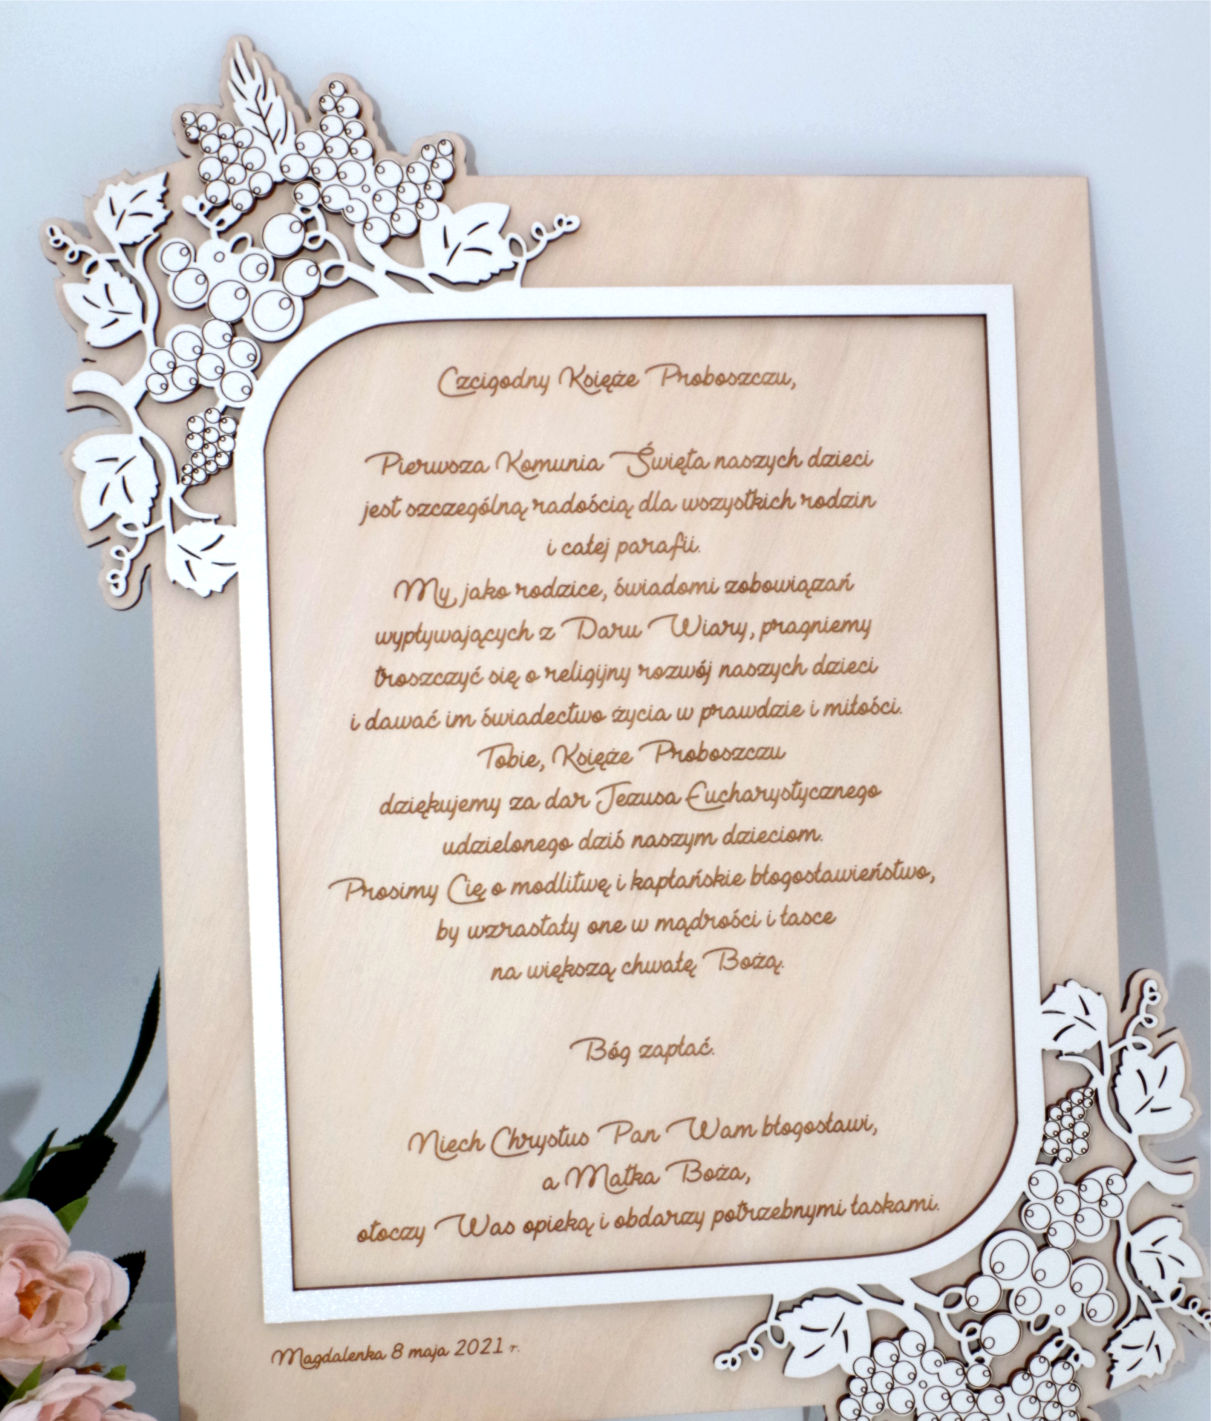 Czcigodny Księże Proboszczu,
Pierwsza Komunia Święta naszych dzieci
jest szczególną radością dla wszystkich rodzin
i całej parafii.
My, jako rodzice, świadomi zobowiązań
wypływających z Daru Wiary, pragniemy
troszczyć się o religijny rozwój naszych dzieci
i dawać im świadectwo życia w prawdzie i miłości.
Tobie, Księże Proboszczu
dziękujemy za dar Jezusa Eucharystycznego
udzielonego dziś naszym dzieciom.
Prosimy Cię o modlitwę i kapłańskie błogosławieństwo,
by wzrastały one w mądrości i łasce
na większą chwałę Bożą.
Bóg zapłać.
Niech Chrystus Pan Wam błogosławi,
a Matka Boża,
otoczy Was opieką i obdarzy potrzebnymi łaskami.
Magdalenka 8 maja 2021 r.